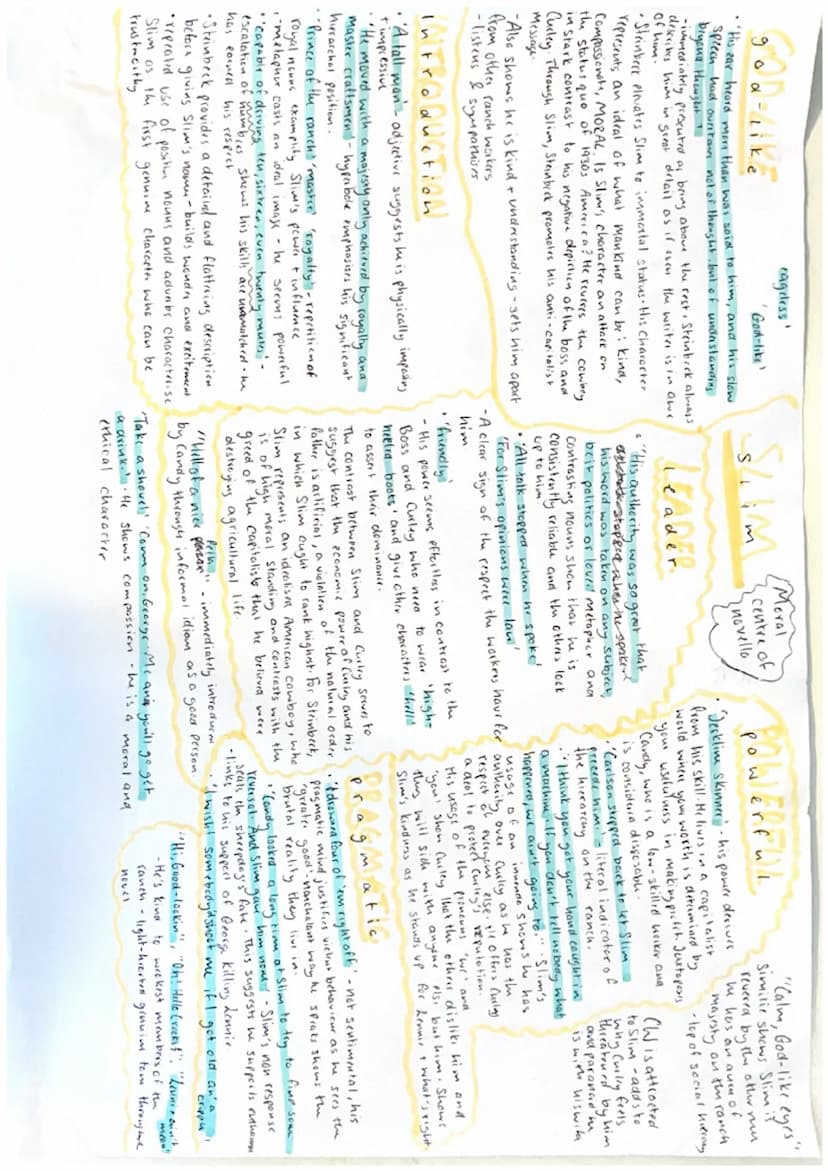 SLIM
Slim
Moral
centre of
novella
GOD-LIKE
god-like
'ageless'
'God-like'
• 'His ear heard more than was said to him, and his slow
speech had overtones not of thought, but of understanding
beyond thought'
- immediately presented as being above the rest. Steinbeck always
describes him in great detail as if even the writer is in awe
of him.
- Steinbeck elevates Slim to immortal status. His character
represents an ideal of what mankind can be: kind,
compassionate, MORAL. Is Slim's character an attack on
the status quo of 1930s America? He reveres the cowboy
in stark contrast to his negative depiction of the boss and
Curley. Through Slim, Steinbeck promotes his anti-capitalist
message.
- Also shows he is kind + understanding - sets him apart
from other ranch workers
- listens & sympathises
INTRODUCTION
Introduction
• 'A tall man' - adjective suggests he is physically imposing
+ impressive
• 'He moved with a majesty only achieved by royalty and
master craftsmen' - hyperbole emphasizes his significant
hierarchal position.
• 'Prince of the ranch' 'master' 'royalty' - repetition of
royal nouns examplify Slim's power + influence
- metaphor casts an ideal image - he seems powerful
• 'capable of driving ten, sixteen, even twenty mules' -
escalation of numbers shows his skills are unmatched - he
has earned his respect
• Steinbeck provides a detailed and flattering description
before giving Slim's name - builds wonder and excitement
• repeated use of positive nouns and adverbs characterise
Slim as the first genuine character who can be
trustworthy
LEADER
Leader
• 'His authority was so great that
his word was taken on any subject,
be it politics or love' metaphor and
contrasting nouns show that he is
consistently reliable and the others look
up to him
• 'All talk stopped when he spoke'
'For Slim's opinions were law'
- A clear sign of the respect the workers have for
him
• 'friendly'
- His power seems effortless in contrast to the
Boss and Curley who need to wear 'high-
heeled boots' and give other characters
to assert their dominance.
The contrast between Slim and Curley serves to
suggest that the economic power of Curley and his
father is artificial, a violation of the natural order
in which Slim ought to rank highest. For Steinbeck,
Slim represents an idealised American cowboy, who
is of high moral standing and contrasts with the
greed of the capitalists that he believed were
destroying agricultural life
• 'Hell of a nice fella' - immediately introduced
by Candy through informal idiom as a good person
'Take a shovel' 'Come on, George. Me and you'll go get
a drink' - He shows compassion - he is a moral and
ethical character
POWERFUL
powerful
• 'Jerkline Skinner' - his power derives
from his skill. He lives in a capitalist
world where your worth is determined by
your usefulness in making profit. Juxtaposes
Candy, who is a low-skilled worker and
is considered disposable.
• 'Carlson stepped back to let Slim
precede him' - literal indicator of
the hierarchy on the ranch.
• 'I think you got your hand caught in
a machine. If you don't tell nobody what
happened, we ain't going to.' - Slim's
usage of an shows he has
authority over Curley as he has the
respect of everyone else. He offers Curley
a deal to protect Curley's reputation.
His usage of the pronouns 'we' and
'you' show Curley that the others dislike him and
they will side with anyone else but him. Shows
Slim's kindness as he stands up for Lennie + what's right.
"Calm, God-like eyes"
Simile shows Slim is
revered by the other men
he has an aura of
majesty on the ranch
- top of social hierarchy
CW is attracted
to Slim - adds to
why Curley feels
threatened by him
and paranoid he
is with his wife
PRAGMATIC
pragmatic
• 'I drowned four of 'em right off' - not sentimental, his
pragmatic mind justifies violent behaviour as he sees the
'greater good'. nonchalant way he speaks shows the
brutal reality they live in.
• 'Candy looked a long time at Slim to try to find some
reversal. And Slim gave him none' - Slim's non response
seals the sheepdog's fate. This suggests he supports euthanasia
- links to his support of George killing Lennie
• 'I wisht somebody'd shoot me if I get old an' a
cripple'
• "Hi, Good-lookin", "Oh! Hello Crooks", "Lennie
- He's kind to weakest members of the
ranch - light-hearted genuine tone throughout
novel